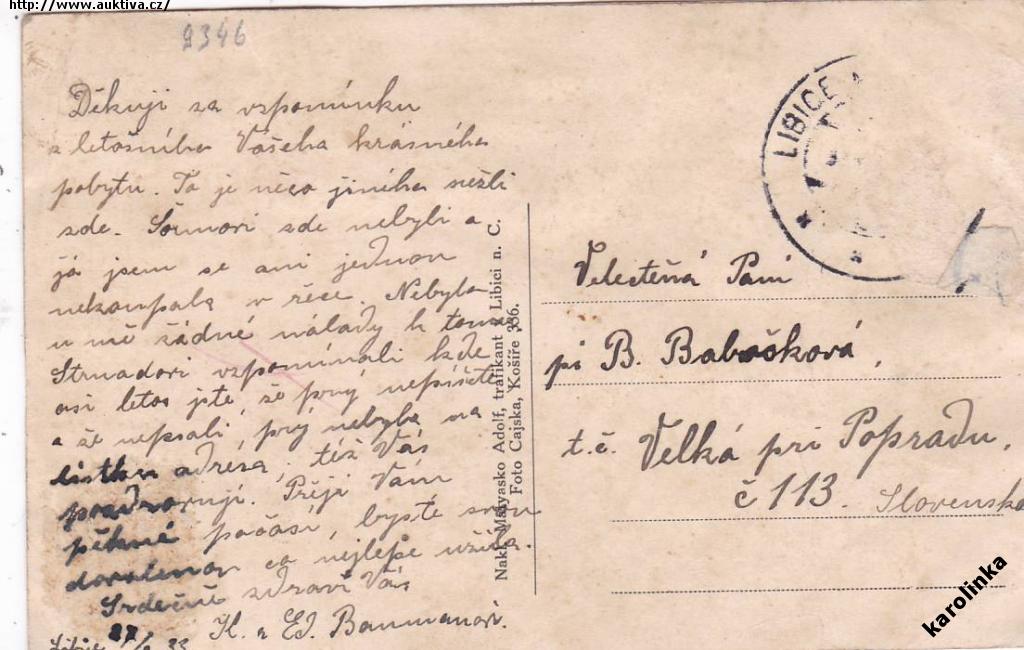 http://www.auktiva.cz/
9346
Děkuji za vzpomínku
z letošního Vašeho krásného
pobytu. To je něco jiného nežli
zde. Šourkovi zde nebyli a
já jsem se ani jednou
nekoupala v řece. Nebyla
u mě žádné nálady k tomu
Strnadovi vzpomínali kde
asi letos jste, že prý nepíšete
a že nepsali, prý nebyla na
lístku adresa, též Vás
pozdravují. Přeji Vám
pěkné počasí, byste svou
dovolenou co nejlépe užila.
Srdečně zdraví Vás
K. a Ed. Baumanovi.
Libice 33
Nakl. Matyasko Adolf, trafikant v Libici n. C.
Foto Cajska, Košíře 336.
LIBICE
Velectěná Paní
pí B. Babočková,
t.č. Velká pri Popradu.
č 113. Slovensko
karolinka